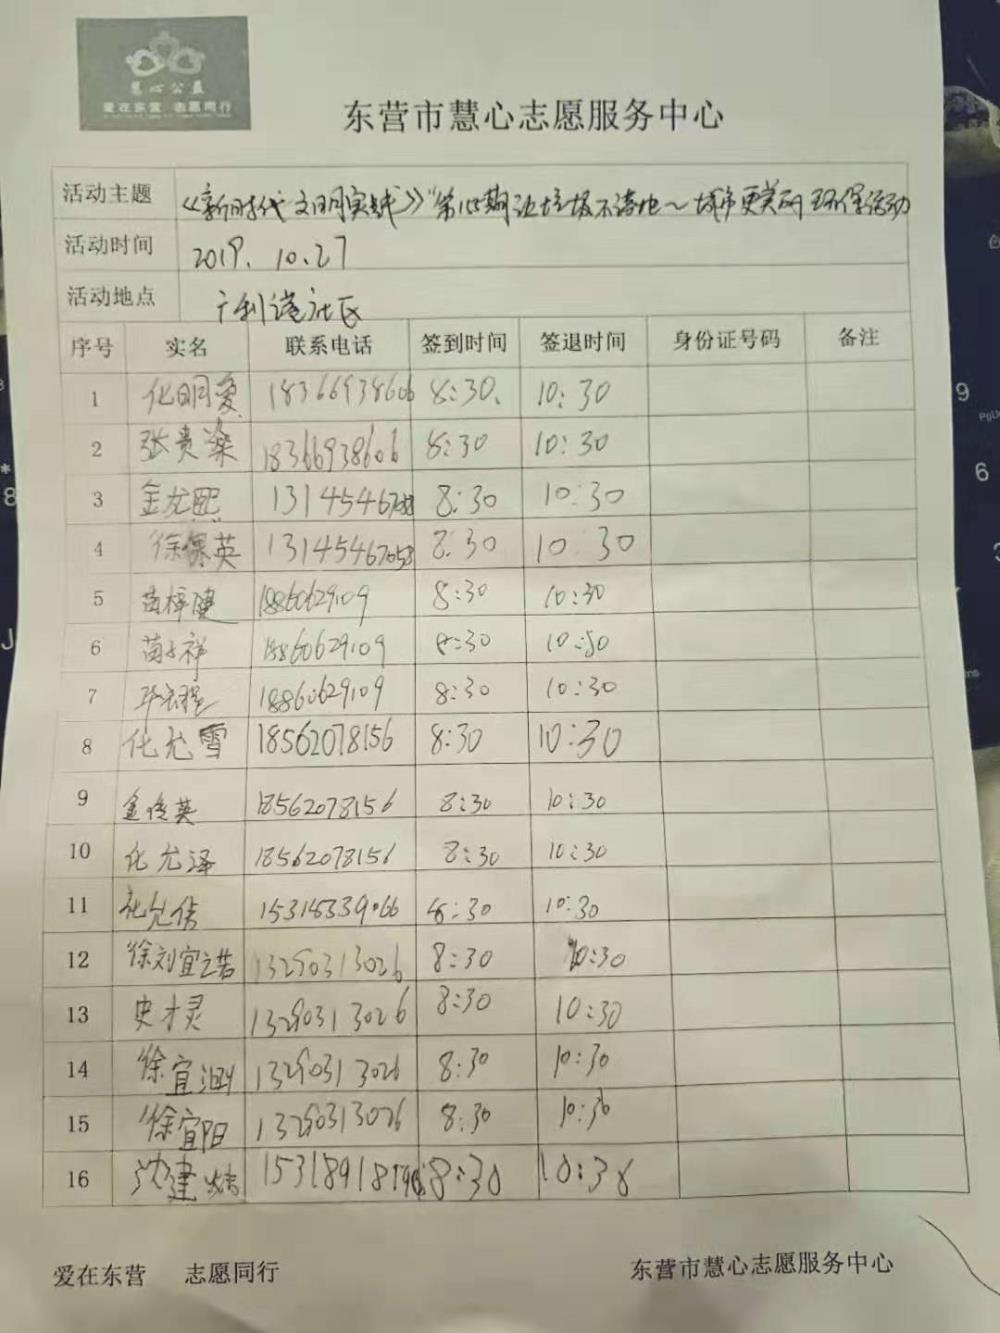 慧心公益
爱在东营 志愿同行
东营市慧心志愿服务中心
活动主题 《新时代文明实践》"第 期让垃圾不落地~城市更美丽 环保活动
活动时间 2019. 10.27
活动地点 广利港社区
序号 实名 联系电话 签到时间 签退时间 身份证号码 备注
1 化明爱 18366938606 8:30. 10:30
2 张贵梁 18366938606 8:30 10:30
3 金龙熙 13145467 8:30 10:30
4 徐保英 13145467058 8:30 10 30
5 苗梓健 18860629109 8:30 10:30
6 苗 祥 18860629109 8:30 10:30
7 18860629109 8:30 10:30
8 化允雪 18562078156 8:30 10:30
9 金俊英 18562078156 8:30 10:30
10 化允泽 18562078156 8:30 10:30
11 化允倩 8:30 10:30
12 徐刘宜诺 13290313026 8:30 10:30
13 史才灵 13290313026 8:30 10:30
14 徐宜 13290313026 8:30 10:30
15 徐宜阳 13290313026 8:30 10:30
16 沈建 8:30 10:38
爱在东营 志愿同行 东营市慧心志愿服务中心
9
PgU
6
3
*
8
J